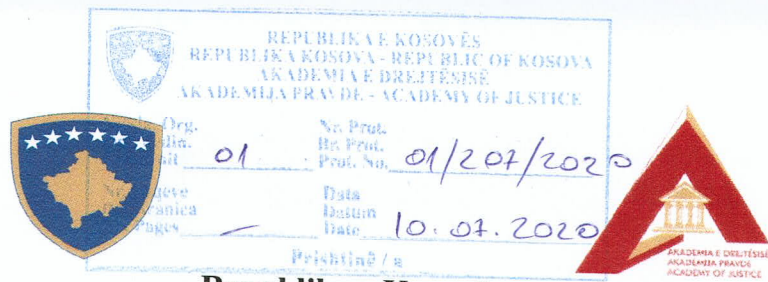 REPUBLIKA E KOSOVËS
REPUBLIKA KOSOVA - REPUBLIC OF KOSOVA
AKADEMIA E DREJTËSISË
AKADEMIJA PRAVDE - ACADEMY OF JUSTICE
Org. Nr. Prot.
Br. Prot.
01 Prot. No. 01/207/2020
Data
Datum
Pages — Date 10.07.2020
Prishtinë / a
AKADEMIA E DREJTËSISË
AKADEMIJA PRAVDE
ACADEMY OF JUSTICE